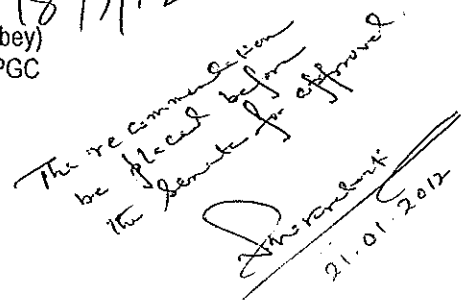 bey)
PGC
The recommendation
be placed before
the Senate for approval.
21.01.2012